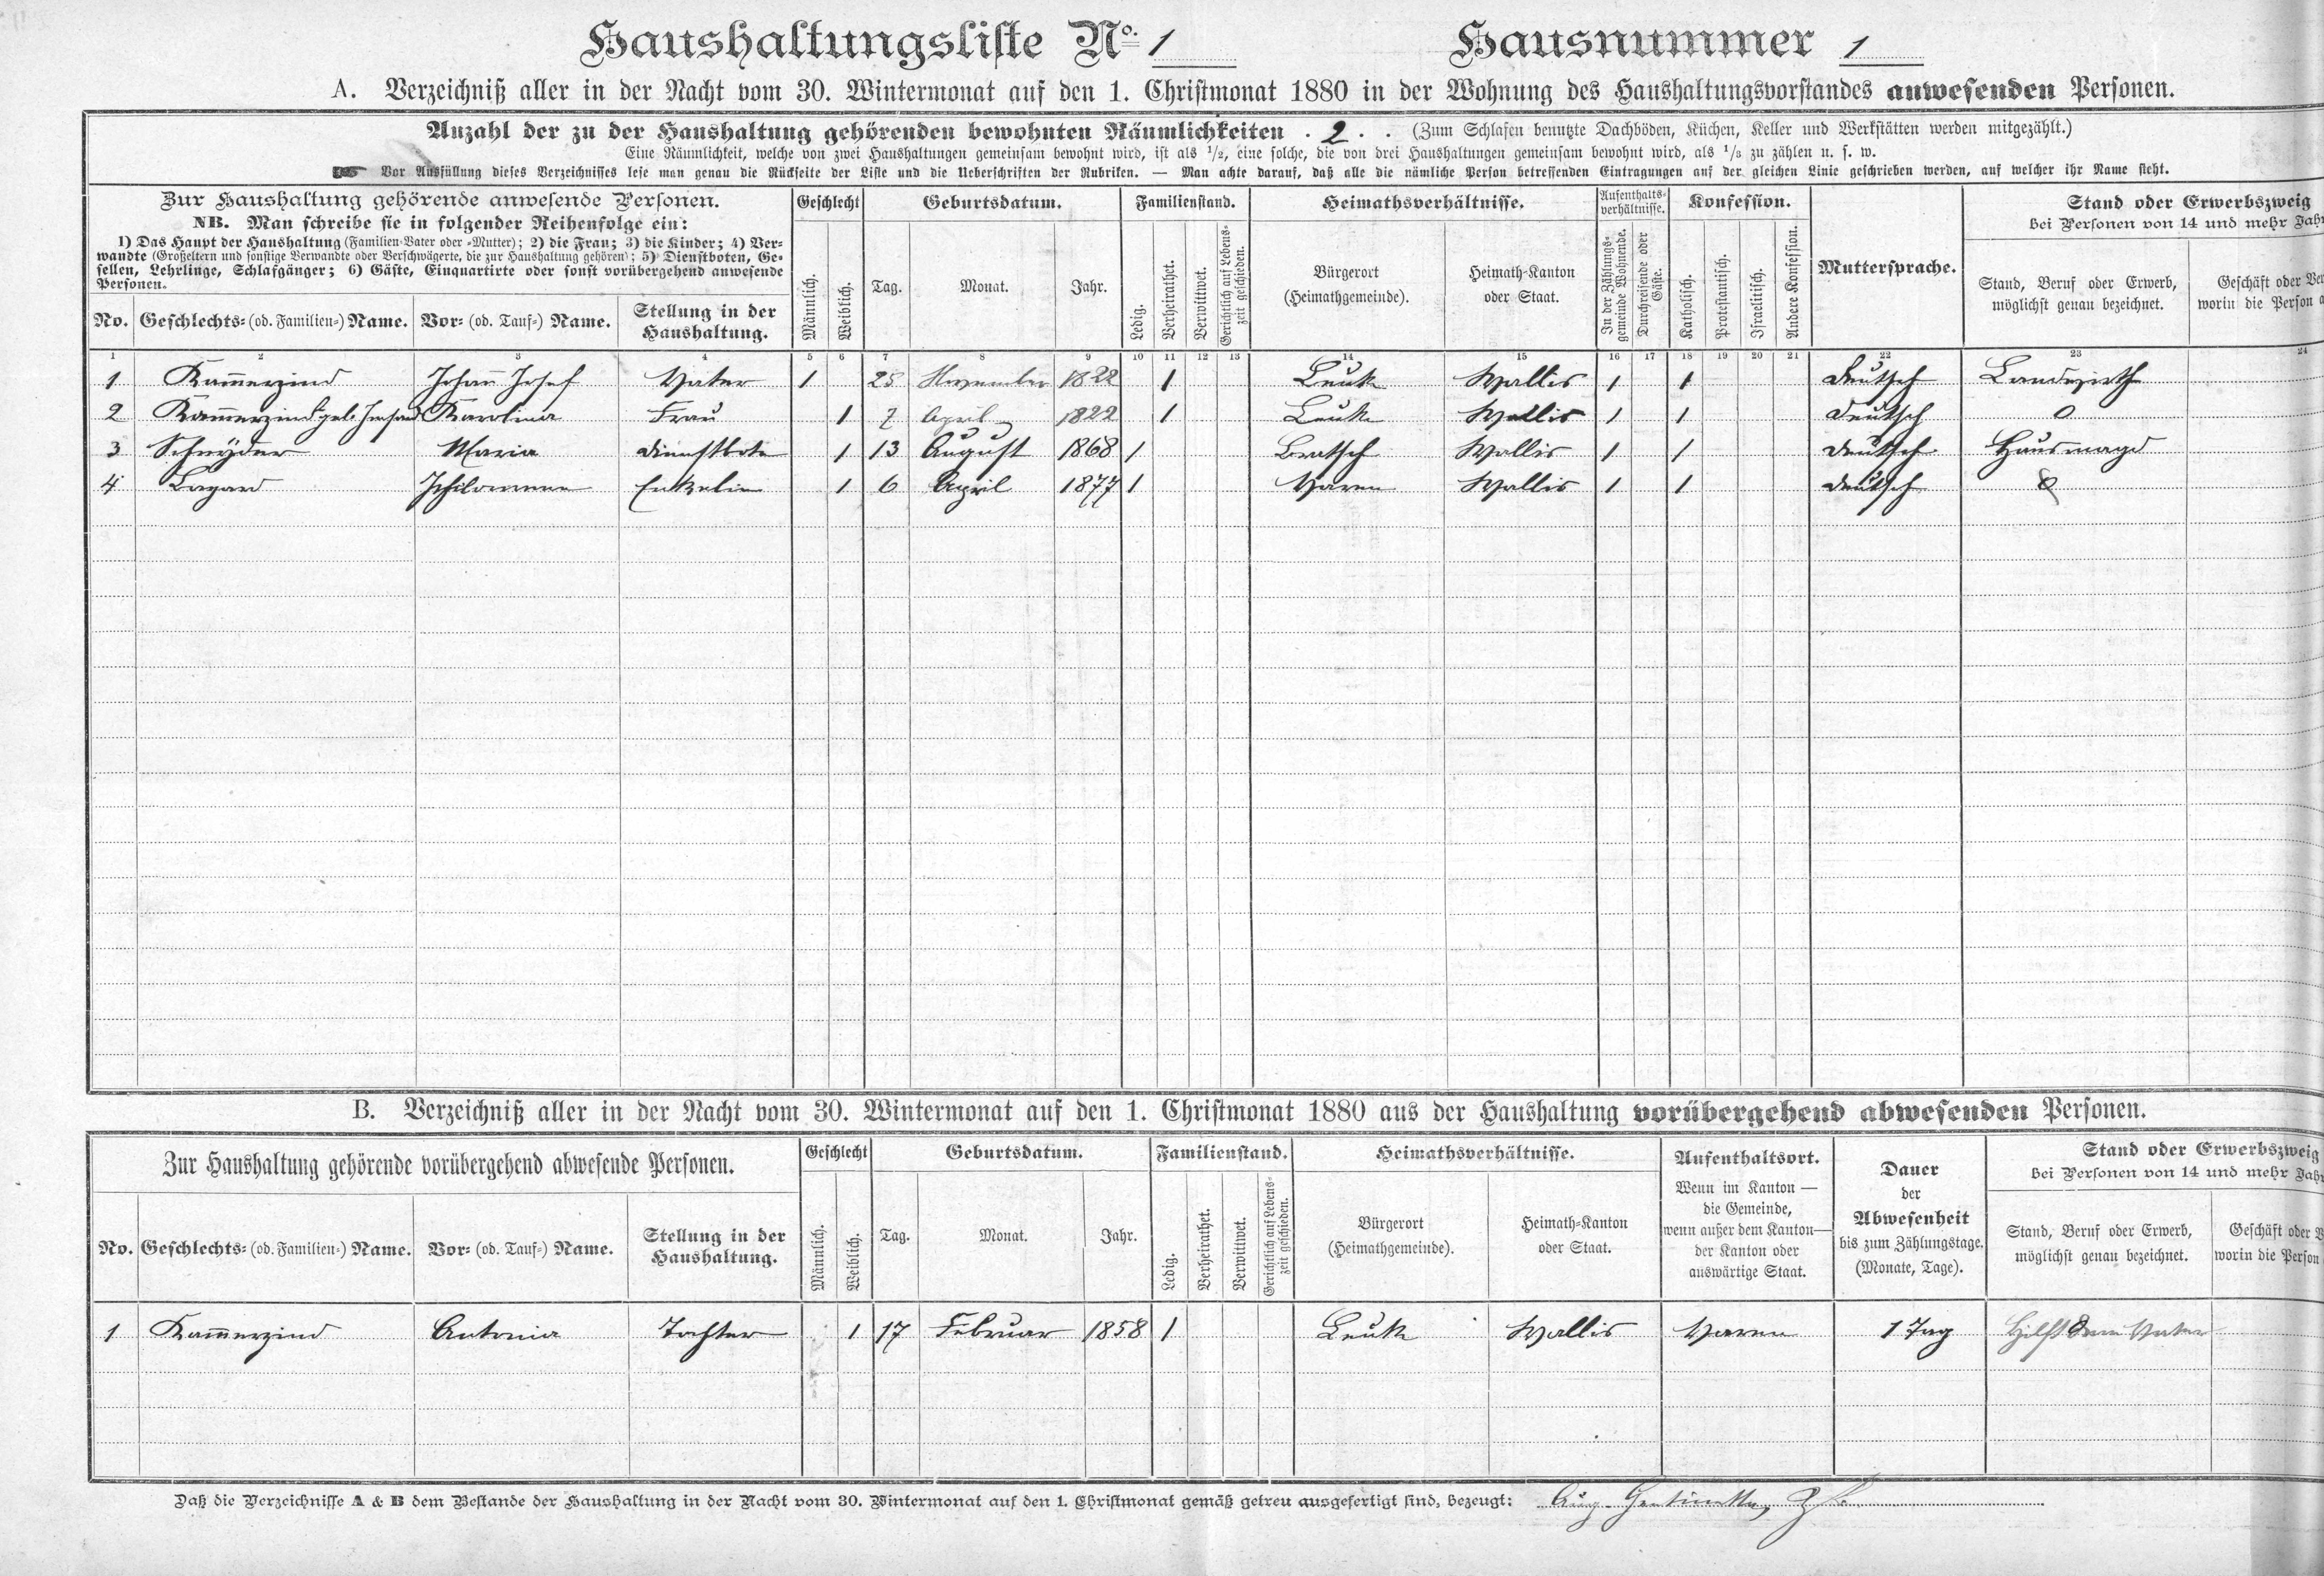 Haushaltungsliste No. 1 Hausnummer 1
A. Verzeichniß aller in der Nacht vom 30. Wintermonat auf den 1. Christmonat 1880 in der Wohnung des Haushaltungsvorstandes anwesenden Personen.
Anzahl der zu der Haushaltung gehörenden bewohnten Räumlichkeiten . 2 . . (Zum Schlafen benutzte Dachböden, Küchen, Keller und Werkstätten werden mitgezählt.)
Eine Räumlichkeit, welche von zwei Haushaltungen gemeinsam bewohnt wird, ist als 1/2, eine solche, die von drei Haushaltungen gemeinsam bewohnt wird, als 1/3 zu zählen u. s. w.
☛ Vor Ausfüllung dieses Verzeichnisses lese man genau die Rückseite der Liste und die Ueberschriften der Rubriken. — Man achte darauf, daß alle die nämliche Person betreffenden Eintragungen auf der gleichen Linie geschrieben werden, auf welcher ihr Name steht.
Zur Haushaltung gehörende anwesende Personen.
NB. Man schreibe sie in folgender Reihenfolge ein:
1) Das Haupt der Haushaltung (Familien-Vater oder -Mutter); 2) die Frau; 3) die Kinder; 4) Ver-
wandte (Großeltern und sonstige Verwandte oder Verschwägerte, die zur Haushaltung gehören); 5) Dienstboten, Ge-
sellen, Lehrlinge, Schlafgänger; 6) Gäste, Einquartirte oder sonst vorübergehend anwesende
Personen.
No. Geschlechts- (od. Familien-) Name. Vor- (od. Tauf-) Name. Stellung in der
Haushaltung.
Geschlecht
Männlich. Weiblich.
Geburtsdatum.
Tag. Monat. Jahr.
Familienstand.
Ledig. Verheirathet. Verwittwet. Gerichtlich auf Lebens-
zeit geschieden.
Heimathsverhältnisse.
Bürgerort
(Heimathgemeinde).
Heimath-Kanton
oder Staat.
Aufenthalts-
verhältnisse.
In der Zählungs-
gemeinde Wohnende.
Durchreisende oder
Gäste.
Konfession.
Katholisch. Protestantisch. Israelitisch. Andere Konfession.
Muttersprache.
Stand oder Erwerbszweig
bei Personen von 14 und mehr Jahr
Stand, Beruf oder Erwerb,
möglichst genau bezeichnet.
Geschäft oder Ver
worin die Person a
1 2 3 4 5 6 7 8 9 10 11 12 13 14 15 16 17 18 19 20 21 22 23 24
1 Kam̄erzind Johan̄ Josef Vater 1 25 November 1822 1 Leuk Wallis 1 1 deutsch Landwirth
2 Kam̄erzind geb. Karolina Frau 1 7 April 1822 1 Leuk Wallis 1 1 deutsch 0
3 Schnyder Maria Dienstbote 1 13 August 1868 1 Bratsch Wallis 1 1 deutsch Hausmagd
4 Bayard Philomene Enkelin 1 6 April 1877 1 Varen Wallis 1 1 deutsch 0
B. Verzeichniß aller in der Nacht vom 30. Wintermonat auf den 1. Christmonat 1880 aus der Haushaltung vorübergehend abwesenden Personen.
Zur Haushaltung gehörende vorübergehend abwesende Personen.
No. Geschlechts- (od. Familien-) Name. Vor- (od. Tauf-) Name. Stellung in der
Haushaltung.
Geschlecht
Männlich. Weiblich.
Geburtsdatum.
Tag. Monat. Jahr.
Familienstand.
Ledig. Verheirathet. Verwittwet. Gerichtlich auf Lebens-
zeit geschieden.
Heimathsverhältnisse.
Bürgerort
(Heimathgemeinde).
Heimath-Kanton
oder Staat.
Aufenthaltsort.
Wenn im Kanton —
die Gemeinde,
wenn außer dem Kanton—
der Kanton oder
auswärtige Staat.
Dauer
der
Abwesenheit
bis zum Zählungstage.
(Monate, Tage).
Stand oder Erwerbszweig
bei Personen von 14 und mehr Jahr
Stand, Beruf oder Erwerb,
möglichst genau bezeichnet.
Geschäft oder V
worin die Person
1 Kam̄erzind Antonia Tochter 1 17 Februar 1858 1 Leuk Wallis Varen 1 Tag Hilft dem Vater
Daß die Verzeichnisse A & B dem Bestande der Haushaltung in der Nacht vom 30. Wintermonat auf den 1. Christmonat gemäß getreu ausgefertigt sind, bezeugt: Aug. Gentinetta,